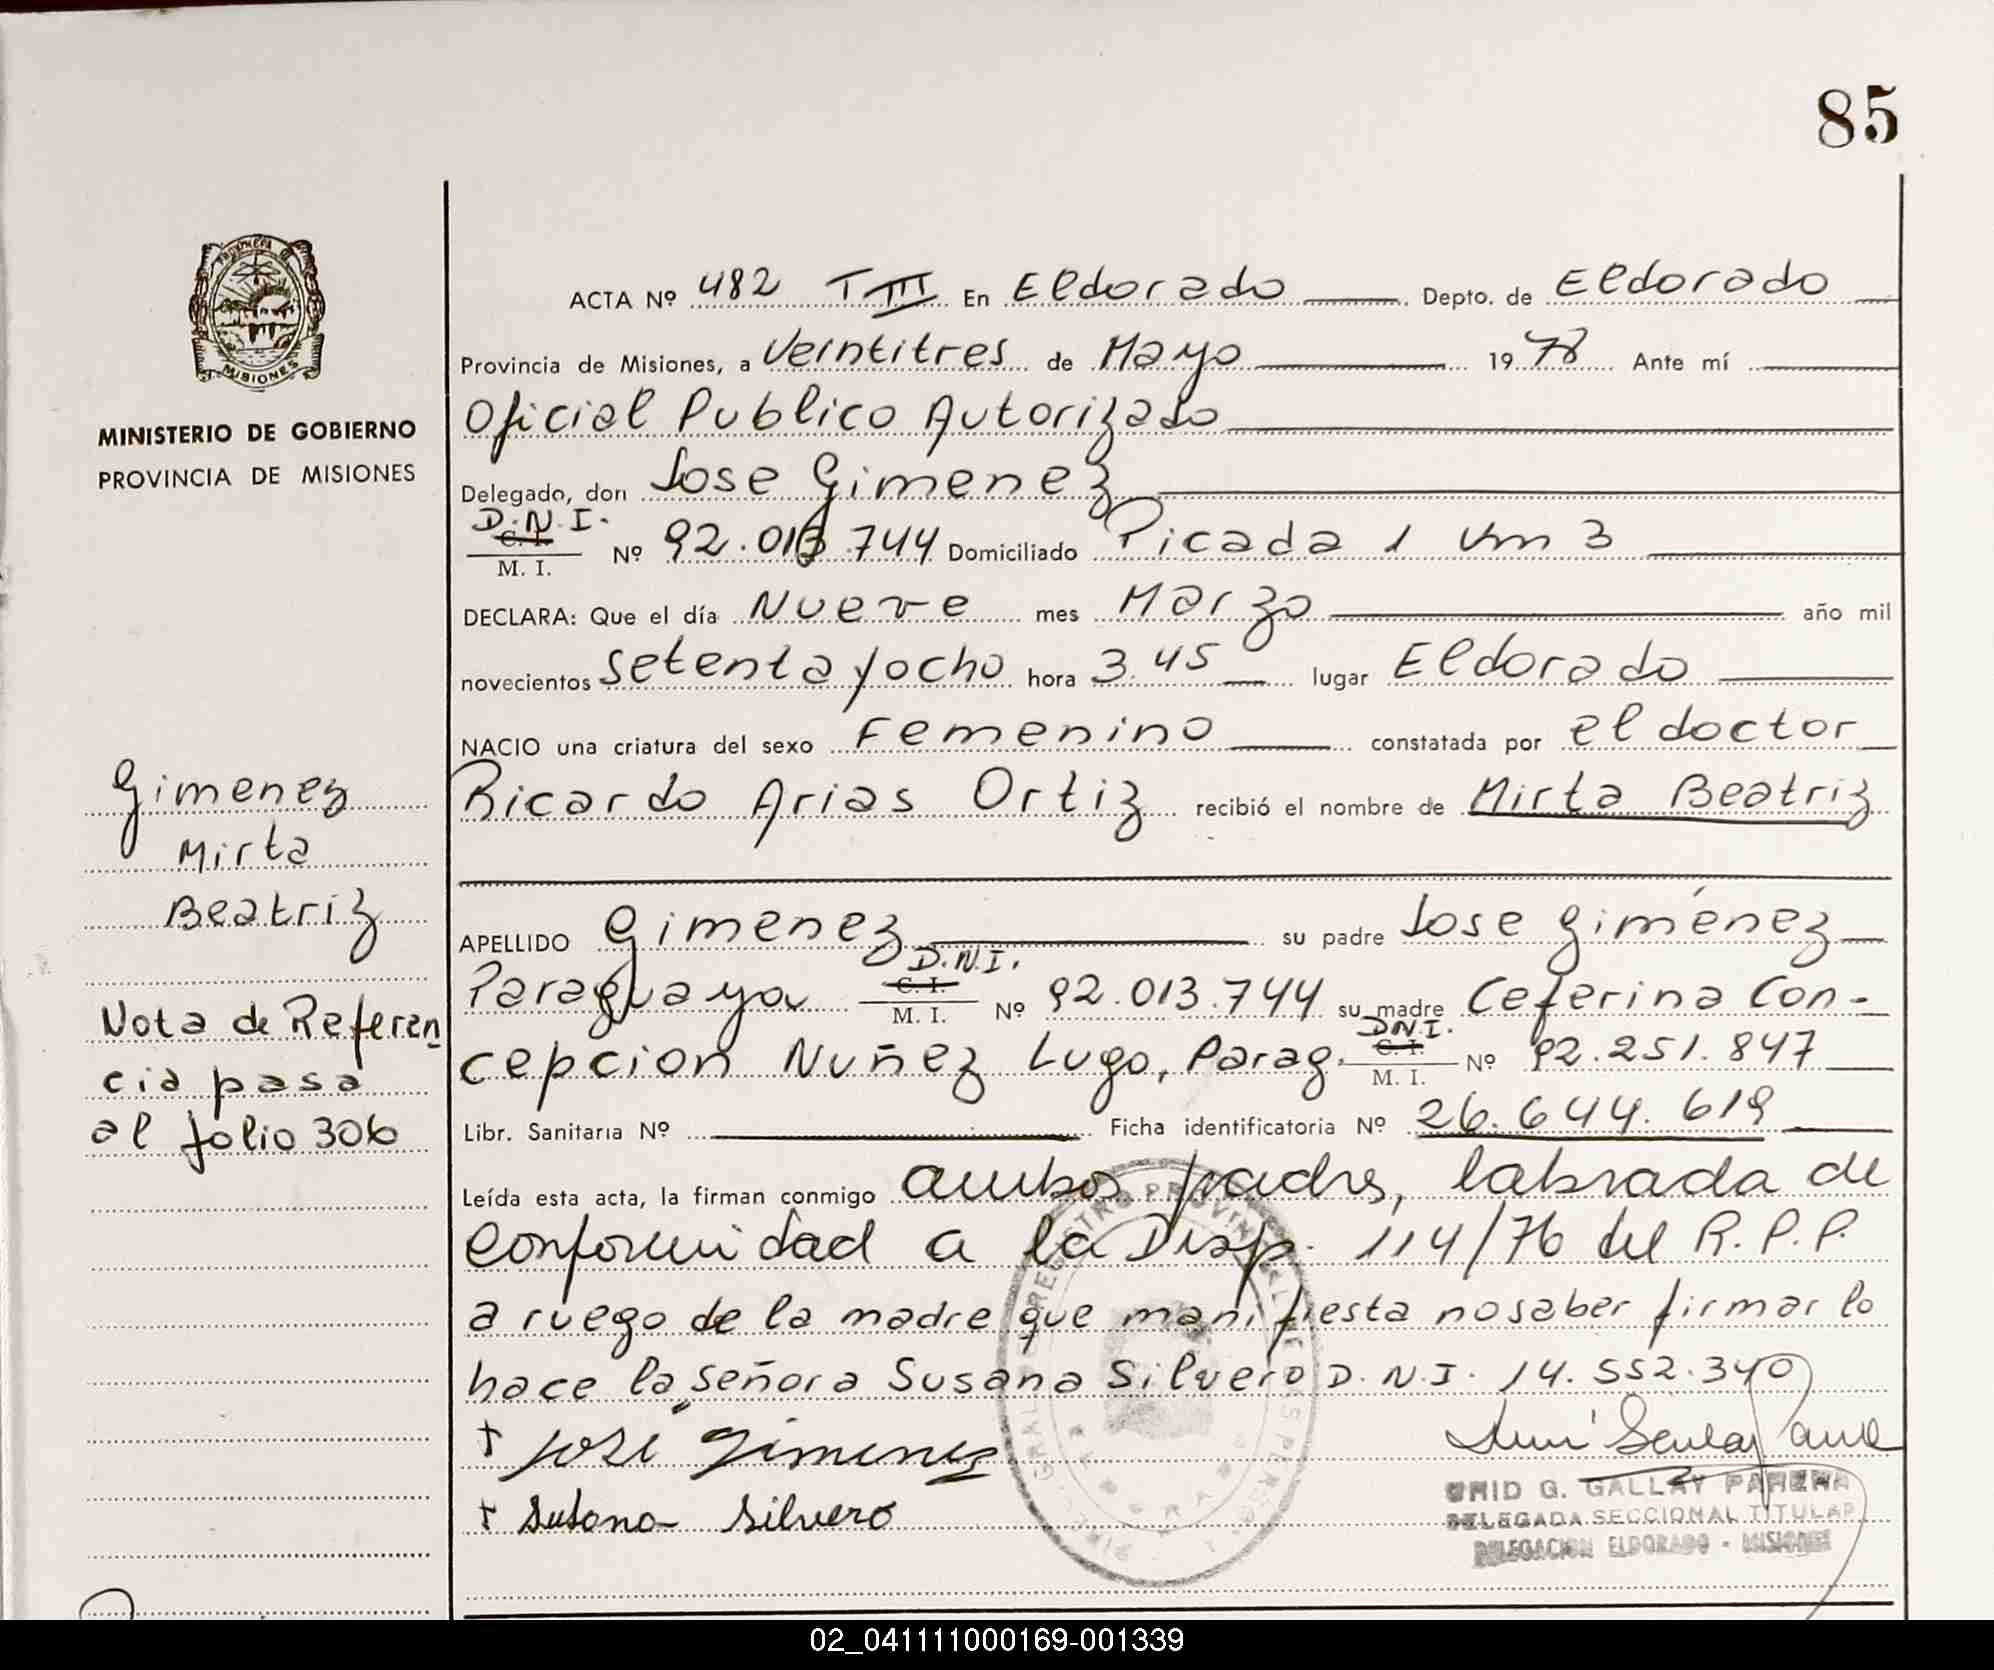 85
PROVINCIA
MISIONES
MINISTERIO DE GOBIERNO
PROVINCIA DE MISIONES
Gimenez
Mirta
Beatriz
Nota de Referen
cia pasa
al folio 306
ACTA Nº 482 T III En Eldorado Depto. de Eldorado
Provincia de Misiones, a Veintitres de Mayo 1978 Ante mí
Oficial Publico Autorizado
Delegado, don Jose Gimenez
D.N.I. C. I. M. I. Nº 92.013.744 Domiciliado Picada 1 Km 3
DECLARA: Que el día Nueve mes Marzo año mil
novecientos setenta y ocho hora 3.45 lugar Eldorado
NACIO una criatura del sexo Femenino constatada por el doctor
Ricardo Arias Ortiz recibió el nombre de Mirta Beatriz
APELLIDO Gimenez su padre Jose Giménez
Paraguayo D.N.I. C. I. M. I. Nº 92.013.744 su madre Ceferina Con-
cepcion Nuñez Lugo, Parag. D.N.I. C. I. M. I. Nº 92.251.847
Libr. Sanitaria Nº Ficha identificatoria Nº 26.644.619
Leída esta acta, la firman conmigo ambos padres, labrada de
conformidad a la Disp. 114/76 del R.P.P.
a ruego de la madre que manifiesta no saber firmar lo
hace la señora Susana Silvero D.N.I. 14.552.340
+ José Gimenez
+ Susana Silvero
G. GALLAY PARERA
DELEGADA SECCIONAL TITULAR
DELEGACION ELDORADO - MISIONES
02_041111000169-001339